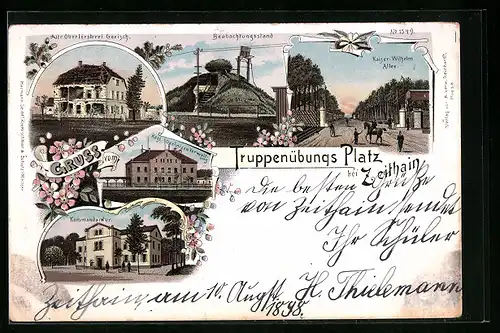 Alte Oberförsterei Gorisch.
Beobachtungsstand
No 1549.
Kaiser-Wilhelm
Allee.
GRUSS
vom
Truppenübungs Platz
bei Zeithain
Kommandantur.
Die besten Grüße
von Zeithain sendet
Ihr Schüler
H. Thielemann
Zeithain, am 10. August
1898.